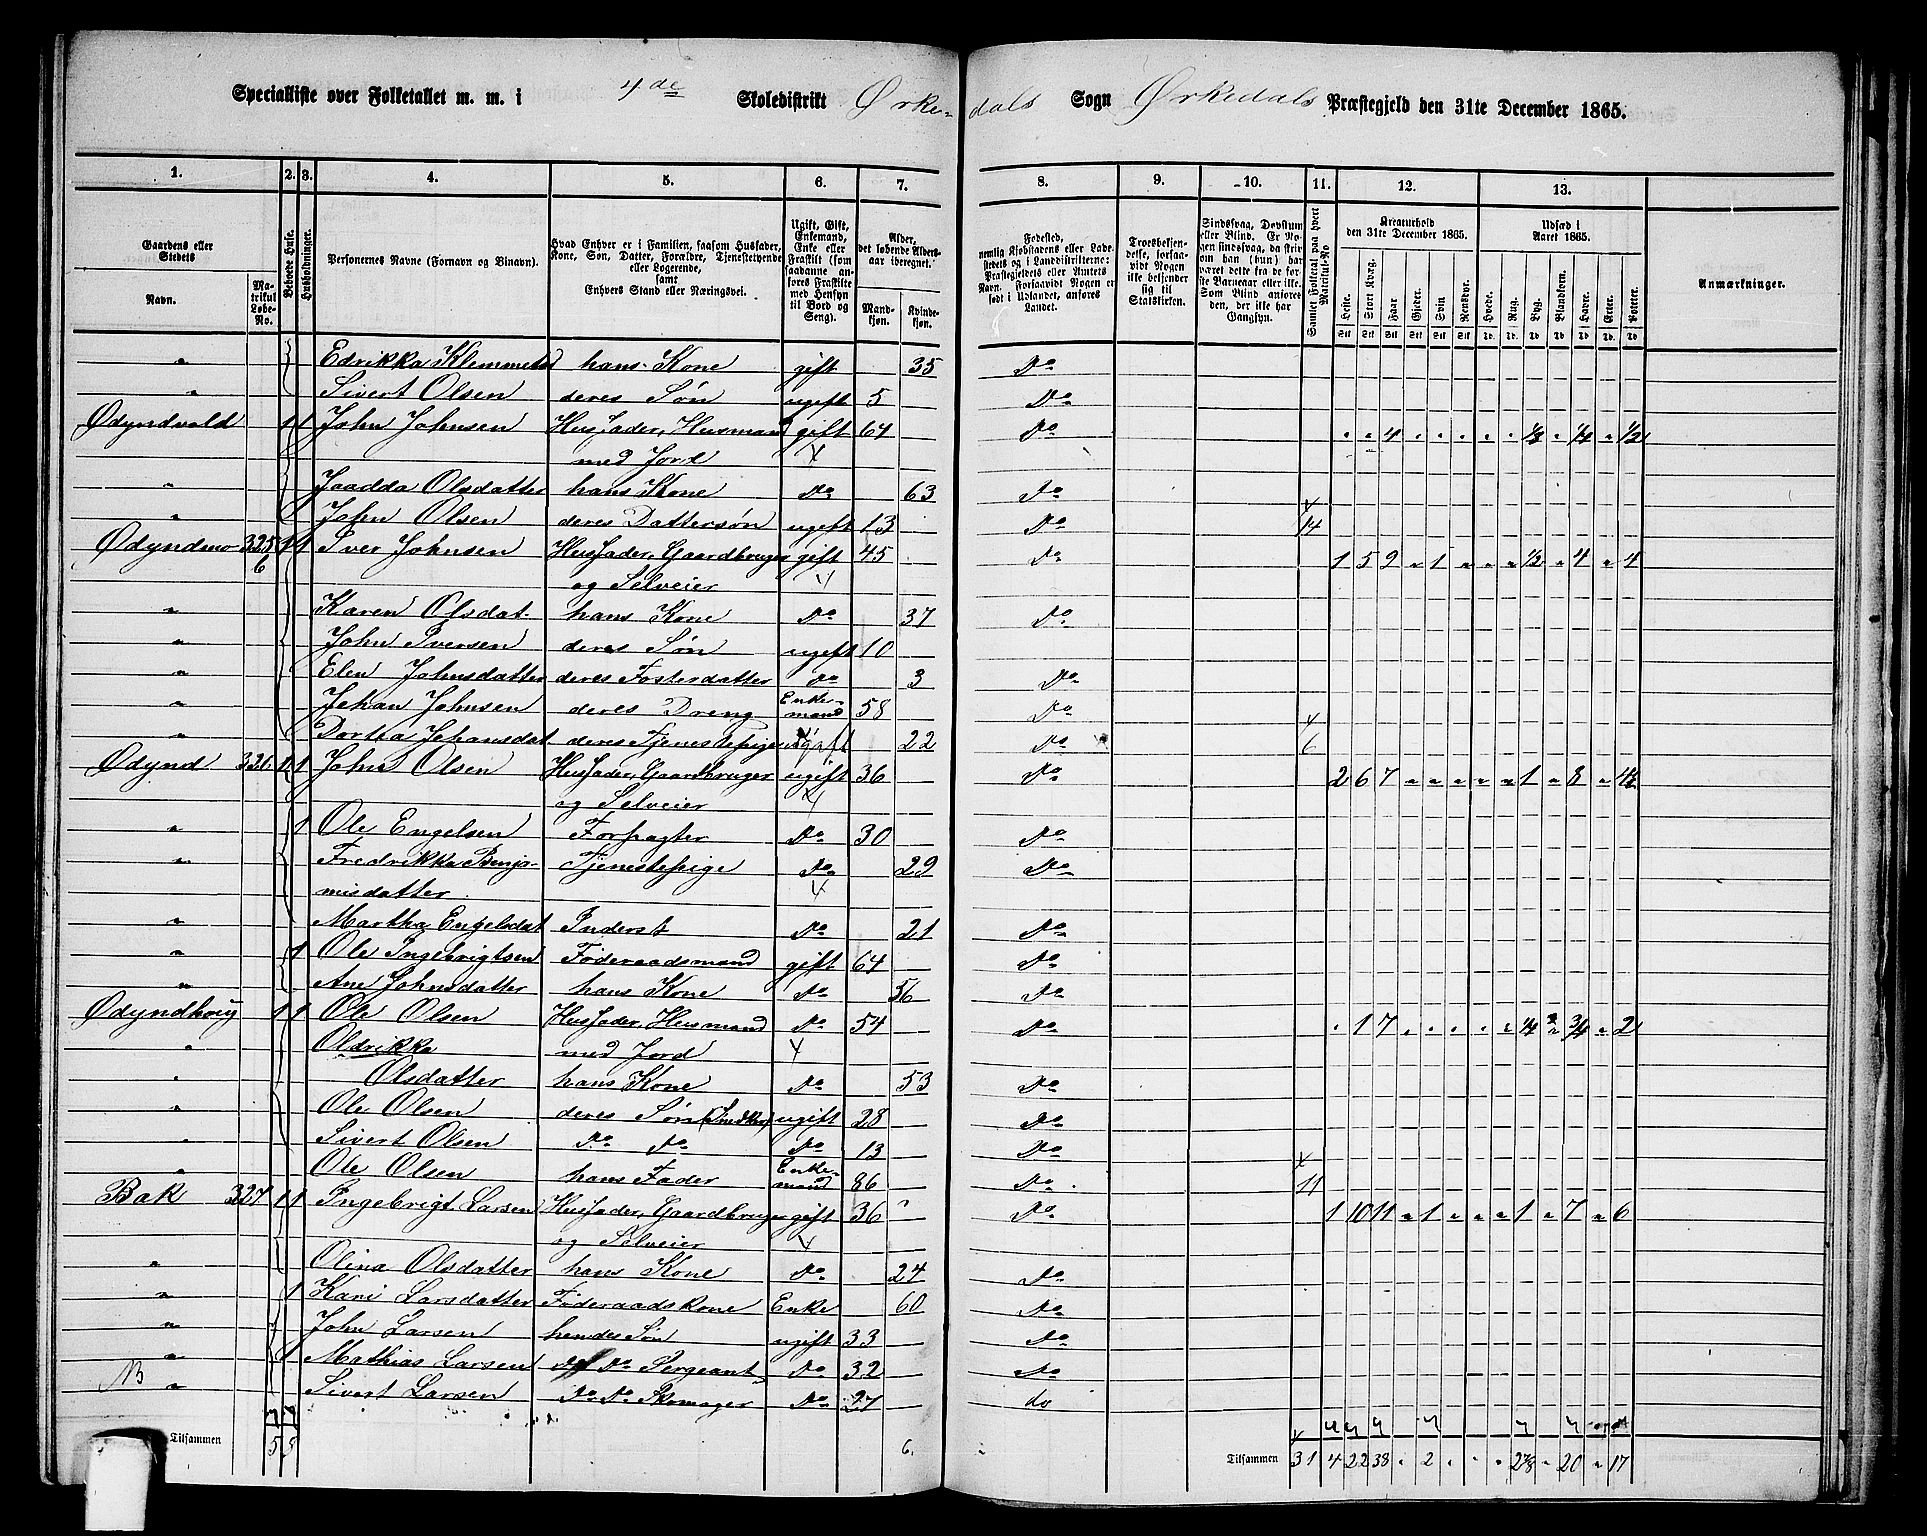 Specialliste over Folketallet m. m. i 4de Skoledistrikt Ørkedals Sogn Ørkedals Præstegjeld den 31te December 1865.
1. 2. 3. 4. 5. 6. 7. 8. 9. 10. 11. 12. 13.
Gaardens eller Stedets
Navn. Matrikul Løbe-No.
Beboede Huse.
Husholdninger.
Personernes Navne (Fornavn og Binavn).
Hvad Enhver er i Familien, saasom Husfader, Kone, Søn, Datter, Forældre, Tjenestetyende eller Logerende, samt Enhvers Stand eller Næringsvei.
Ugift, Gift, Enkemand, Enke eller Fraskilt (som saadanne anføres Fraskilte med Hensyn til Bord og Seng).
Alder, det løbende Alders-aar iberegnet.
Mandkjøn. Kvindekjøn.
Fødested, nemlig Kjøbstadens eller Ladestedets og i Landdistrikterne: Præstegjeldets eller Amtets Navn. Forsaavidt Nogen er født i Udlandet, anføres Landet.
Troesbekjendelse, forsaavidt Nogen ikke bekjender sig til Statskirken.
Sindssvag, Døvstum eller Blind. Er Nogen sindssvag, da skriv om han (hun) har været dette fra de første Barneaar eller ikke. Som Blind anføres der, der ikke har Gangsyn.
Samlet Folketal paa hvert Matrikul-No
Kreaturhold den 31te December 1865.
Heste. Stort Kvæg. Faar. Gjeder. Svin. Rensdyr.
Udsæd i Aaret 1865.
Hvede. Rug. Byg. Blandkorn. Havre. Erter. Poteter.
Anmærkninger.
" Edrikka Klemmetsd hans Kone gift 35 Do
" Sivert Olsen deres Søn ugift 5 Do
Ødyndvald 1 1 John Johnsen Husfader, Husmand gift 64 Do " " 4 " " " " " 1/8 " 1/4 " 1/2
med Jord
" Jaadda Olsdatter hans Kone Do 63 Do
" John Olsen deres Dattersøn ugift 13 Do 14
Ødyndmo 325 6 1 1 Iver Johnsen Husfader, Gaardbruger gift 45 Do 1 5 9 " 1 " " " 1/2 " 4 " 4
og Selveier
" Karen Olsdat. hans Kone Do 37 Do
" John Iversen deres Søn ugift 10
" Elen Johnsdatter deres Fosterdatter Do 3 Do
" Johan Johnsen deres Dreng Enkemand 58 Do
" Dortea Johansdat deres Tjenestepige ugift 22 Do 6
Ødynd 326 1 1 John Olsen Husfader, Gaardbruger ugift 36 Do 2 6 7 " " " " " 1 " 8 " 4 1/2
og Selveier
" 1 Ole Engelsen Forpagter Do 30 Do
" Fredrikka Benja- Tjenestepige Do 29 Do
misdatter
" Martha Engelsdat Inderst Do 21 Do
" 1 Ole Ingebrigtsen Føderaadsmand gift 64 Do
" Ane Johnsdatter hans Kone Do 56 Do
Ødyndhoug 1 1 Ole Olsen Husfader, Husmand Do 54 Do " 1 7 " " " " " 1/4 " 3/4 " 2
" Oldrikka med Jord
" Olsdatter hans Kone Do 53 Do
" Ole Olsen deres Søn ugift 28 Do
" Sivert Olsen Do Do Do 13 Do
" Ole Olsen hans Fader Enkemand 86 Do 11
Bak 327 1 1 Ingebrigt Larsen Husfader, Gaardbruger gift 36 Do 1 10 11 " 1 " " " 1 " 7 " 6
og Selveier
" Olina Olsdatter hans Kone Do 24 Do
" 1 Kari Larsdatter Føderaadskone Enke 60 Do
" John Larsen hendes Søn ugift 33 Do
" 1 Mathias Larsen Do Do Sergeant Do 32 Do
" Sivert Larsen Do Do Skomager Do 27 do
Tilsammen 5 5
Tilsammen 31 4 22 38 " 2 " " " 2 7/8 " 20 " 17